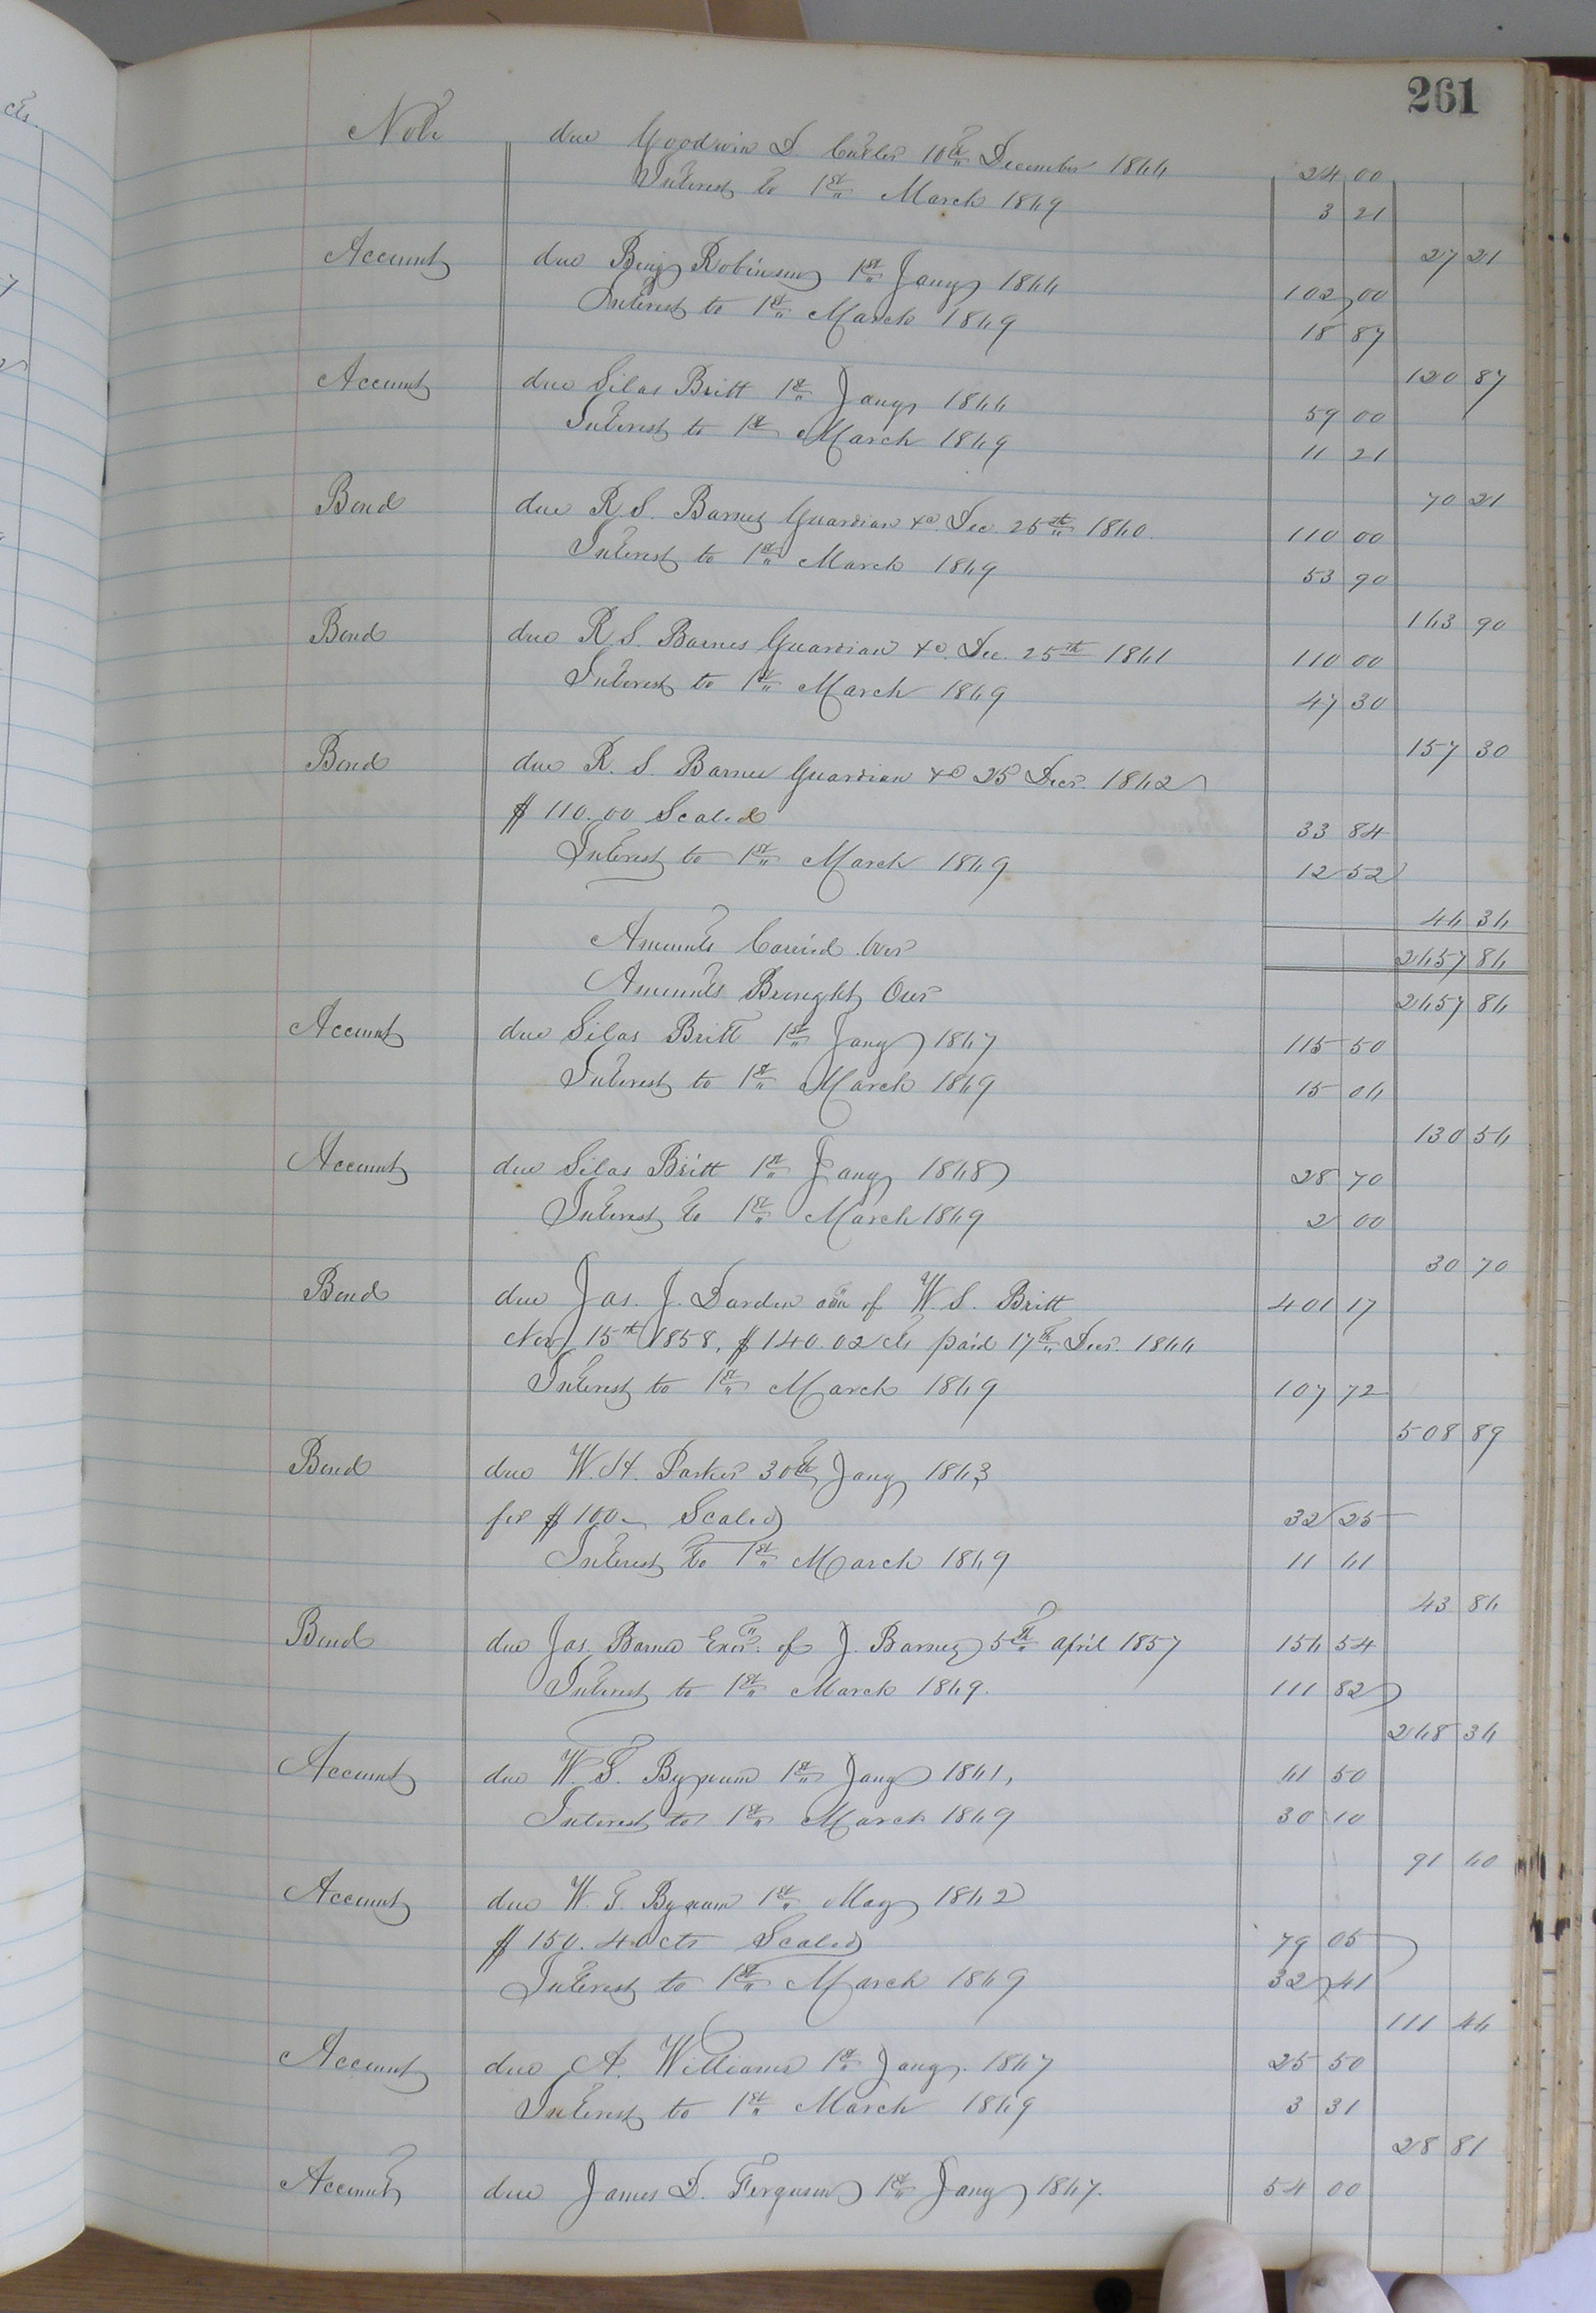 261
Note due Goodwin D Cutler 10th December 1866 24 00
Interest to 1st March 1869 3 21
27 21
Account due Benj Robinson 1st Jany 1866 102 00
Interest to 1st March 1869 18 87
120 87
Account due Silas Britt 1st Jany 1866 59 00
Interest to 1st March 1869 11 21
70 21
Bond due R. S. Barnes Guardian &c. Dec. 25th 1860. 110 00
Interest to 1st March 1869 53 90
163 90
Bond due R. S. Barnes Guardian &c. Dec. 25th 1861 110 00
Interest to 1st March 1869 47 30
157 30
Bond due R. S. Barnes Guardian &c 25 Decr. 1862
$110.00 Scaled 33 84
Interest to 1st March 1869 12 52
46 36
Amounts Carried Over 2657 86
Amounts Brought Over 2657 86
Account due Silas Britt 1st Jany 1867 115 50
Interest to 1st March 1869 15 06
130 56
Account due Silas Britt 1st Jany 1868 28 70
Interest to 1st March 1869 2 00
30 70
Bond due Jas. J. Darden adm of W. S. Britt 401 17
Nov 15th 1858, $140.02 cts paid 17th Decr. 1866
Interest to 1st March 1869 107 72
508 89
Bond due W. H. Parker 30th Jany 1863
for $100 Scaled 32 25
Interest to 1st March 1869 11 61
43 86
Bond due Jas. Barnes Exer. of J. Barnes 5th april 1857 156 54
Interest to 1st March 1869. 111 82
268 36
Account due W. T. Bynum 1st Jany 1861, 61 50
Interest to 1st March 1869 30 10
91 60
Account due W. T. Bynum 1st May 1862
$150.40 cts Scaled 79 05
Interest to 1st March 1869 32 41
111 46
Account due A. Williams 1st Jany. 1867 25 50
Interest to 1st March 1869 3 31
28 81
Account due James D. Ferguson 1st Jany 1867. 54 00